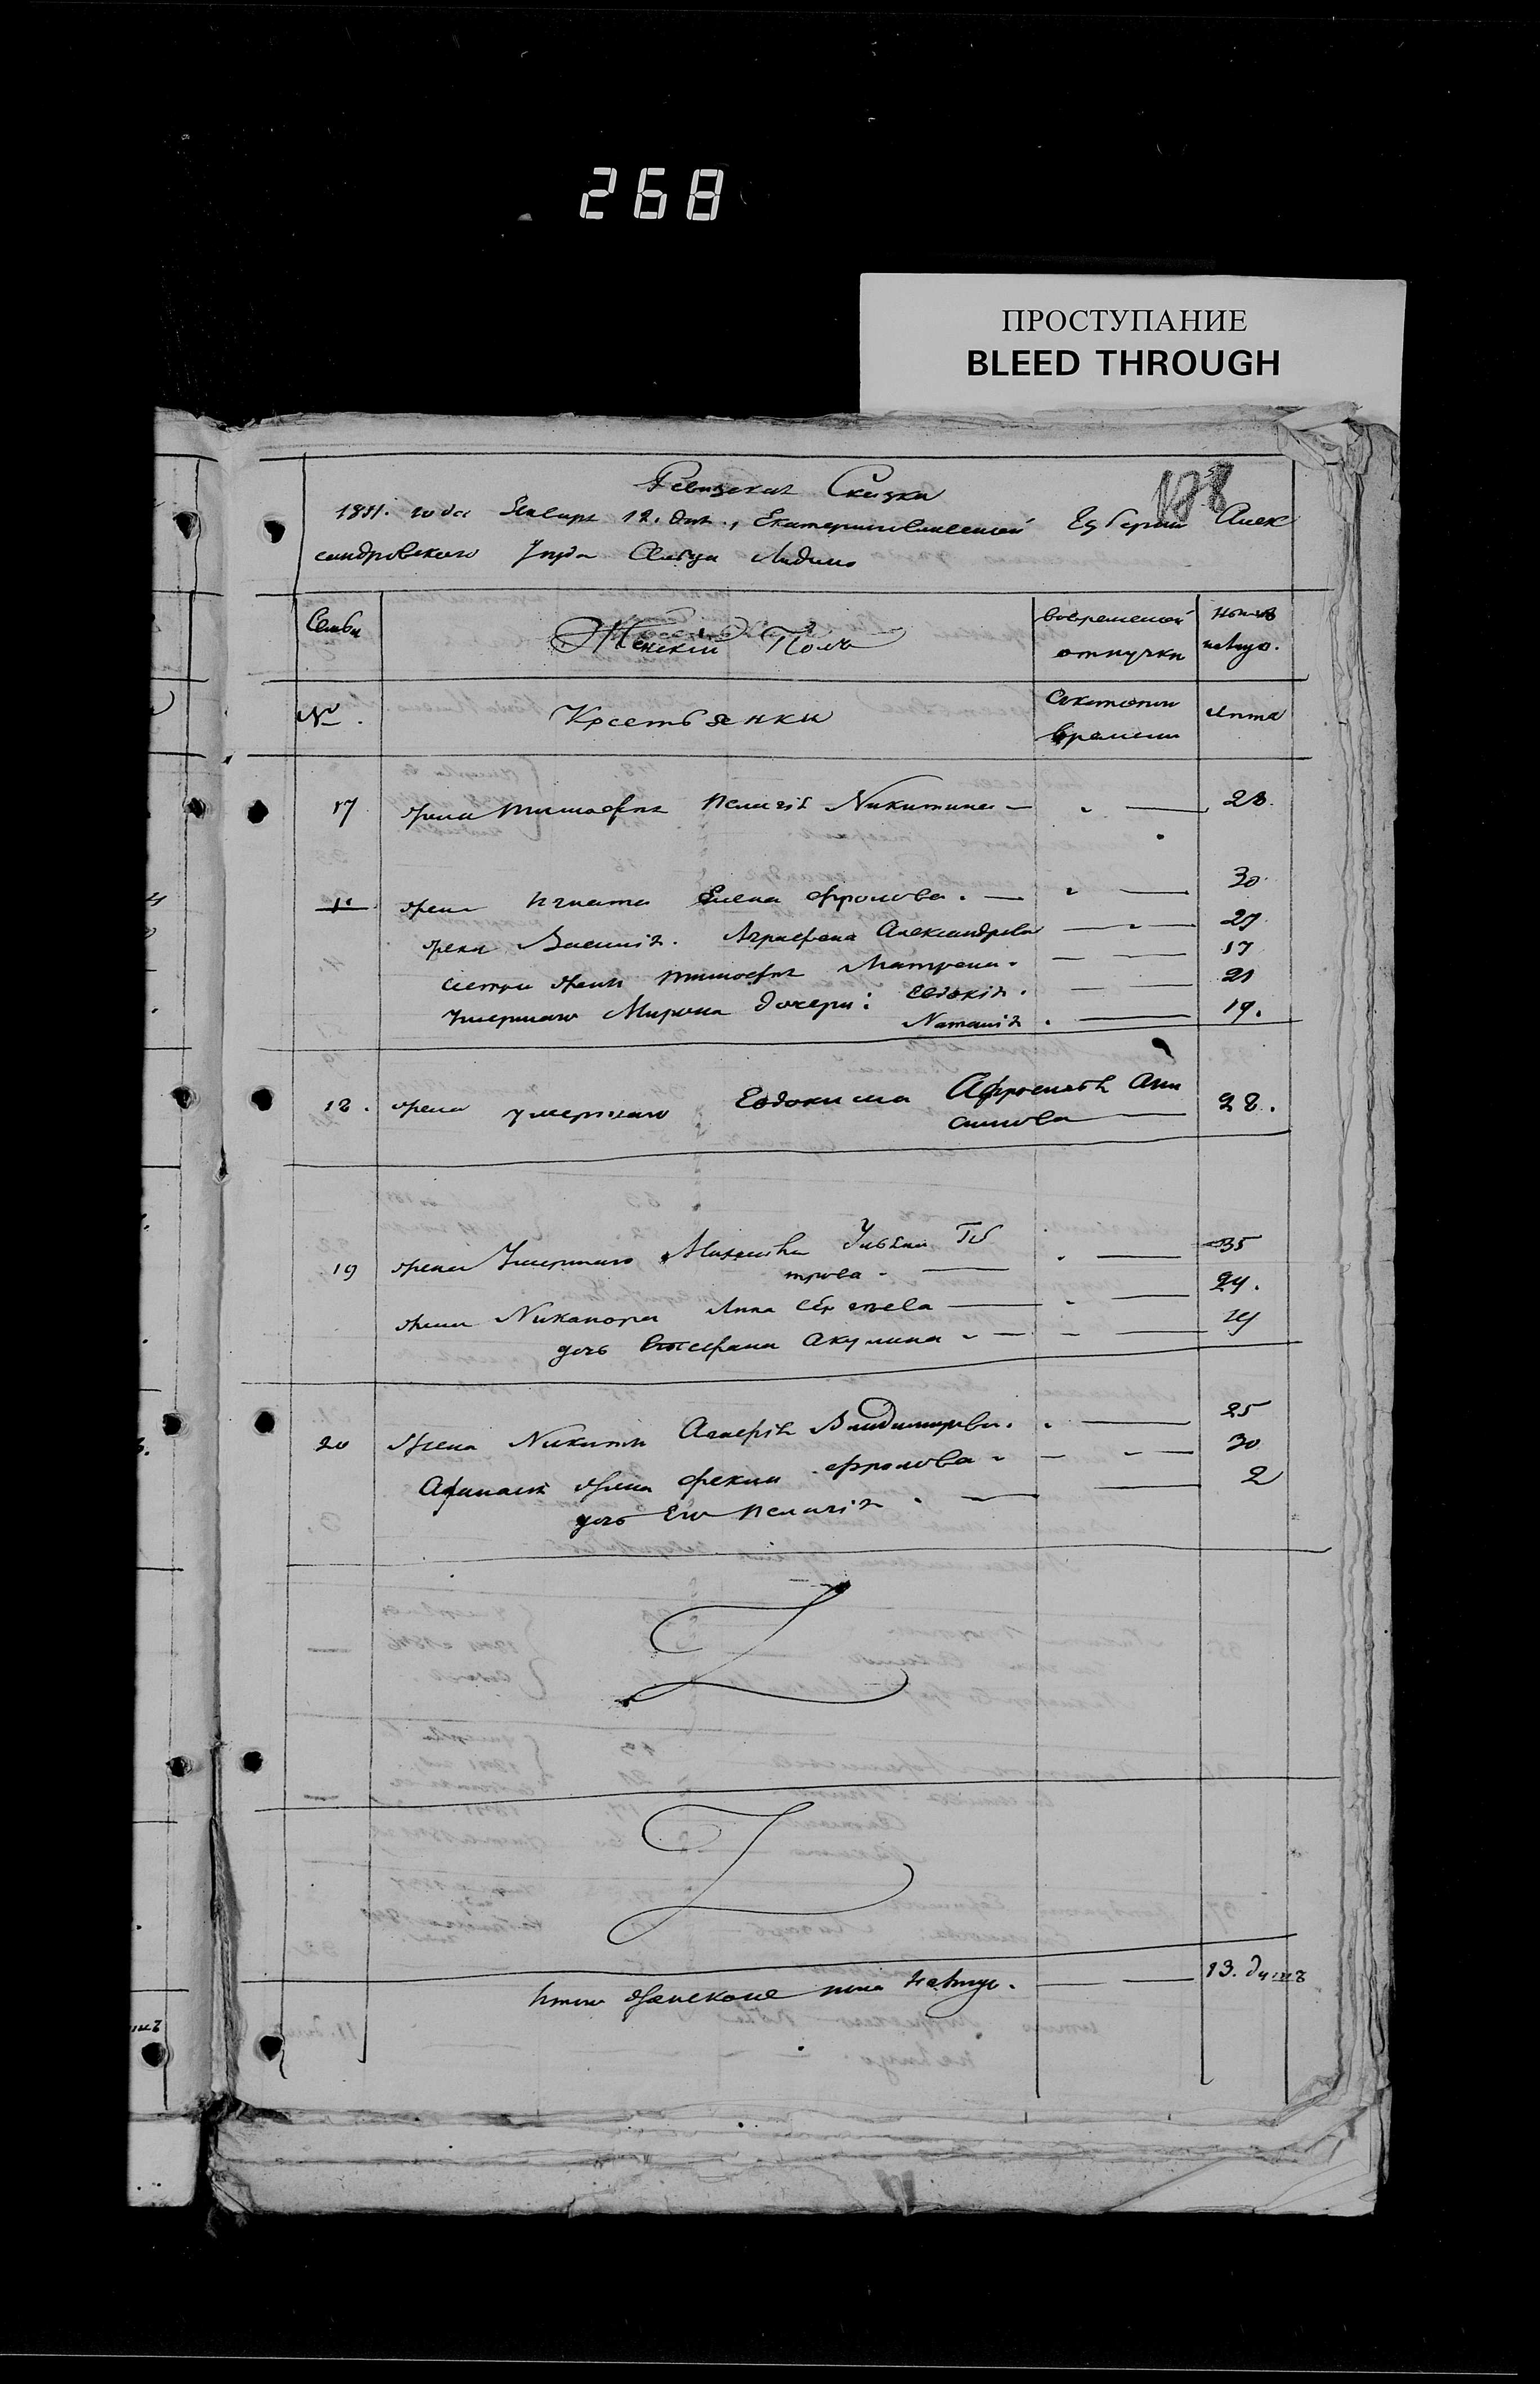 268
ПРОСТУПАНИЕ
BLEED THROUGH
188
Ревизская Сказка
1851. года Января 12. дня, Екатеринославской Губернии Алек
сандровского Уезда
Семьи
Женский Полъ
вовременной
отлучки
ныне
налицо.
№.
Крестьянки
Скакого
времени
Лета
17 жена Тимофея Пелагея Никитина — 28.
жена Игната Елена Фролова. — 30.
жена Василия. Аграфена Александрова — 29
сестра жены Тимофея Матрена. — 17
Умершаго Мирона дочери: Евдокия. — 21
Наталия. — 19.
18. жена умершаго Евдокима Афросинья
28.
19 жена Умершаго Ульяна Пе
трова — 35
жена Никанора Анна — 24.
дочь Акулина —
20 Жена Никиты Агафия Владимирова. — 25
жена Фекла Фролова — 30
дочь Его Пелагия. — 2
Итого женского пола налицо. — 13. душъ